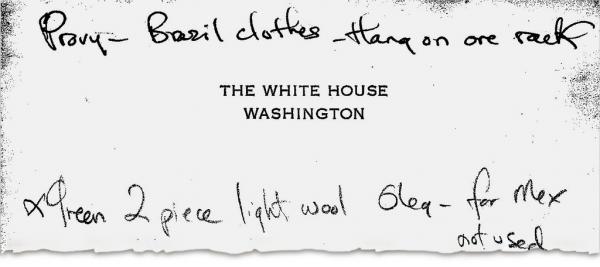 Provy - Brazil clothes - Hang on one rack
THE WHITE HOUSE
WASHINGTON
x Green 2 piece light wool Oleg - for Mex
not used